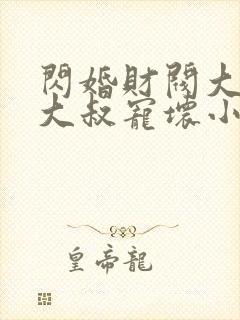 閃婚財閥大
大叔寵壞小
皇帝龍